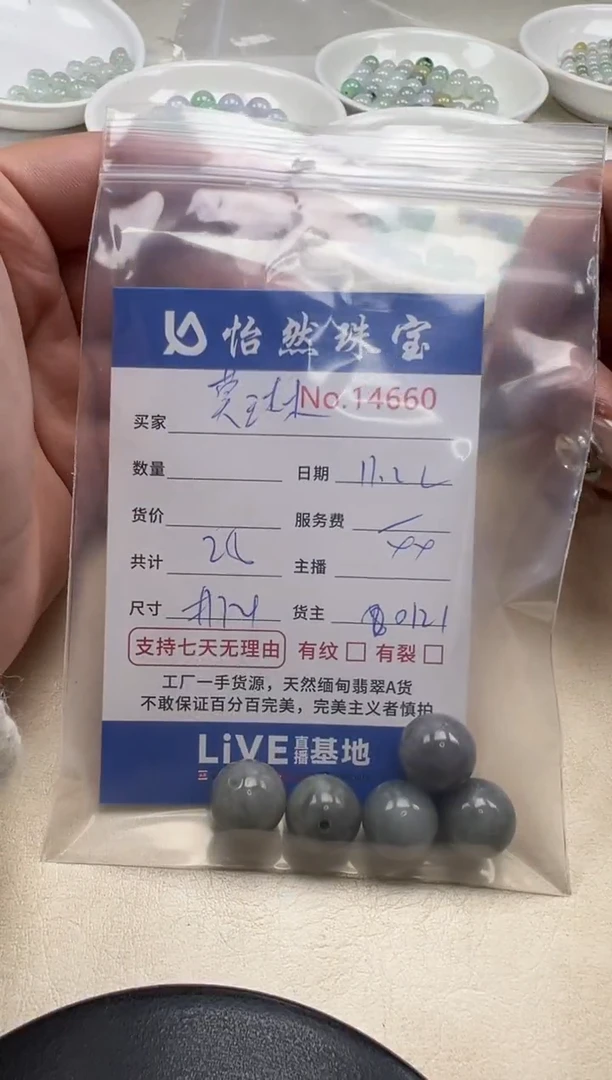 怡然珠宝
No.14660
买家
数量 日期 11.22
货价 服务费
共计 主播
尺寸 货主 80121
支持七天无理由 有纹 有裂
工厂一手货源，天然缅甸翡翠A货
不敢保证百分百完美，完美主义者慎拍
LiVE直播基地